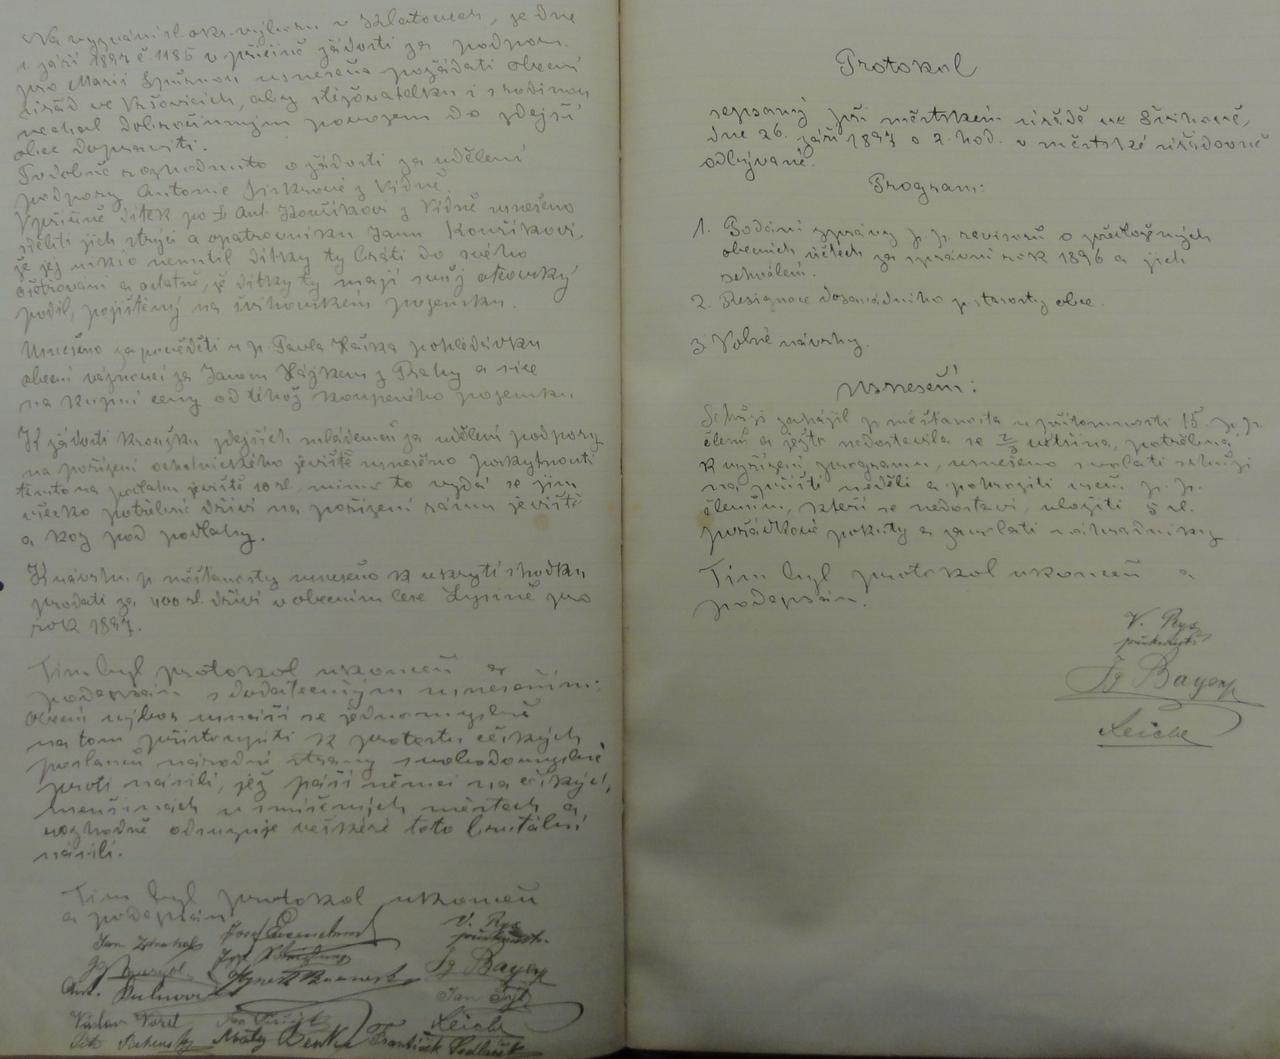 Na vyzvání sl. okr. výboru v Klatovech, ze dne
1. září 1897 č 1185 v příčině žádosti za podporu
pro Marii usneseno požádati obecní
úřad ve Vršovicích, aby stěžovatelku i s rodinou
nechal dobročinným povozem do zdejší
obce dopraviti.
Podobně rozhodnuto o žádosti za udělení
podpory Antonie Jirkové z Vídně.
V příčině dítek po † Ant. Kouříkovi z Vídně usneseno
sděliti jich strýci a opatrovníku Janu Kouříkovi,
že jej nikdo nenutil dítky ty bráti do svého
ošetrování a ostatně, že dítky ty mají svůj otcovský
podíl, pojištěný na švihovském pozemku.
Usnešeno zapověděti u p. Pavla Haška pohledávku
obecní váznoucí za Janem Hájkem z Prahy a sice
na kupní ceny od téhož koupeného pozemku.
K žádosti kroužku zdejších mládenců za udělení podpory
na pořízení ochotnického jeviště usnešeno poskytnouti
témto na podlahu jeviště 10 zl., mimo to vydá se jim
všecko potřebné dříví na pořízení rámu jeviště
a koz pod podlahy.
K návrhu p. měšťanosty usneseno k ukrytí schodku
prodati za 400 zl. dříví v obecním lese Lysině pro
rok 1897.
Tím byl protokol ukončen a
podepsán s dodatečným usnesením:
Obecní výbor usnáší se jednomyslně
na tom přistoupiti k protestu českých
poslanců národní strany svobodomyslné
proti násilí, jež páší němci na českých
menšinách v smíšených městech a
rozhodně odsuzuje veškeré toto brutální
násilí.
Tím byl protokol ukončen
a podepsán
V. Rys
Jg Bayer
Ant.
Jan
Václav
Leicht
František Sedláček
Protokol
sepsaný při městském úřadě ve Švihově,
dne 26. září 1897 o 2. hod. v městské úřadovně
odbývané.
Program:
1. Podání zprávy p. p. revisorů o předložených
obecních účtech za správní rok 1896 a jich
schválení.
2. Resignace dosavadního p. starosty obce.
3. Volné návrhy.
Usnesení:
Schůzi zahájil p. měšťanosta u přítomnosti 15 p. p.
členů a ježto nedostavila se 2/3 většina, potřebná
k vyřízení programu, usnešeno svolati schůzi
na příští neděli a pohroziti všem p. p.
členům, kteří se nedostaví, uložiti 5 zl.
pořádkové pokuty a zavolati náhradníky
Tím byl protokol ukončen a
podepsán.
V. Rys
Jg Bayer
Leicht